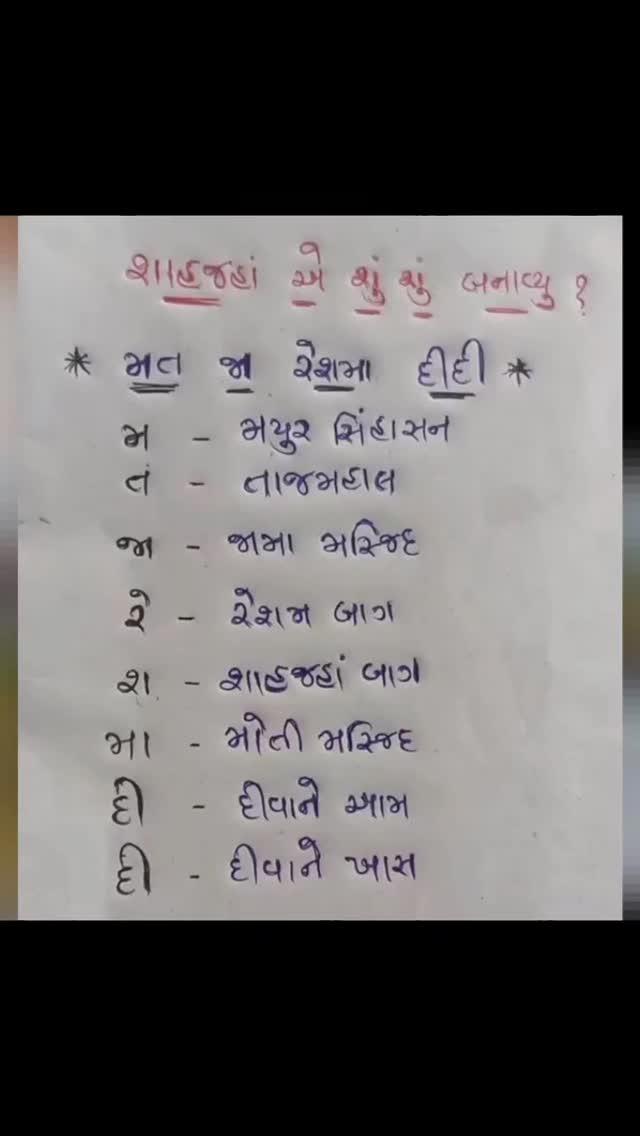 શાહજહાં એ શું શું બનાવ્યુ ?
* મત જા રેશમા દીદી *
મ - મયુર સિંહાસન
તં - તાજમહાલ
જા - જામા મસ્જિદ
રે - રેશમ બાગ
શ - શાહજહાં બાગ
મા - મોતી મસ્જિદ
દી - દીવાને આમ
દી - દીવાને ખાસ